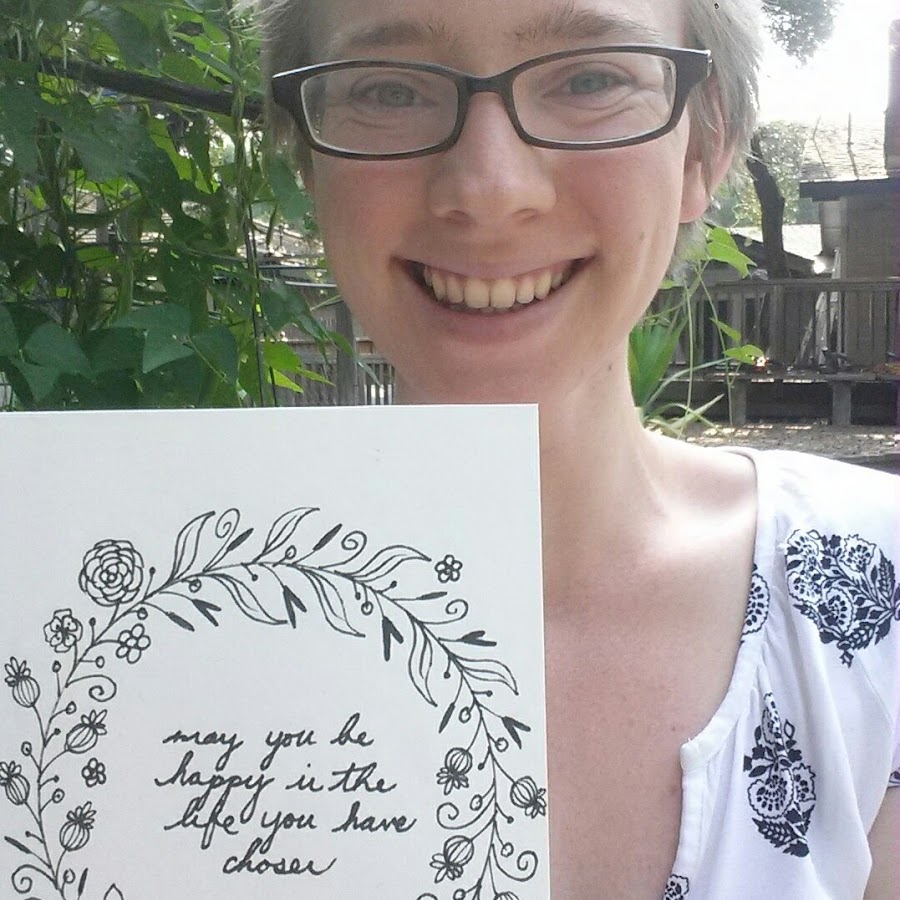 may you be
happy in the
life you have
chosen